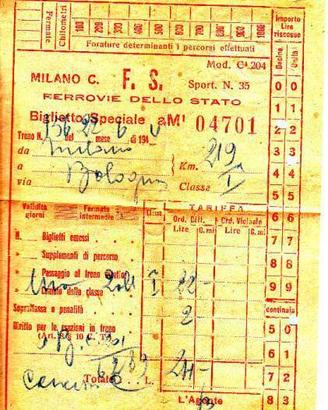 Fermate Chilometri 100 200 300 400 500 600 700 800 900 1000 Importo Lire riscosse
Forature determinanti i percorsi effettuati
Decine Unità
Mod. CI 204
MILANO C. F. S. Sport. N. 35
FERROVIE DELLO STATO
Biglietto Speciale aM' 04701
Treno N. 156 del 22 mese 6 di 194
da Milano Km. 219
a Bologna
via Classe I
0 0
1 1
2 2
3 3
4 4
5 5
6 6
7 7
8 8
9 9
centinaia
5 0
6 1
7 2
8 3
9 4
Validità giorni Fermate intermedie Classe TARIFFA
Ord. Diff. Ord. Vicinale
Lire C. mi Lire C. mi
N. Biglietti emessi
Supplementi di percorso
Passaggio al treno
Cambio della classe I 22 -
Soprattassa o penalità 2
Diritto per le esazioni in treno
(Art. 10 C. T.)
Totale L. 24 -
L'Agente